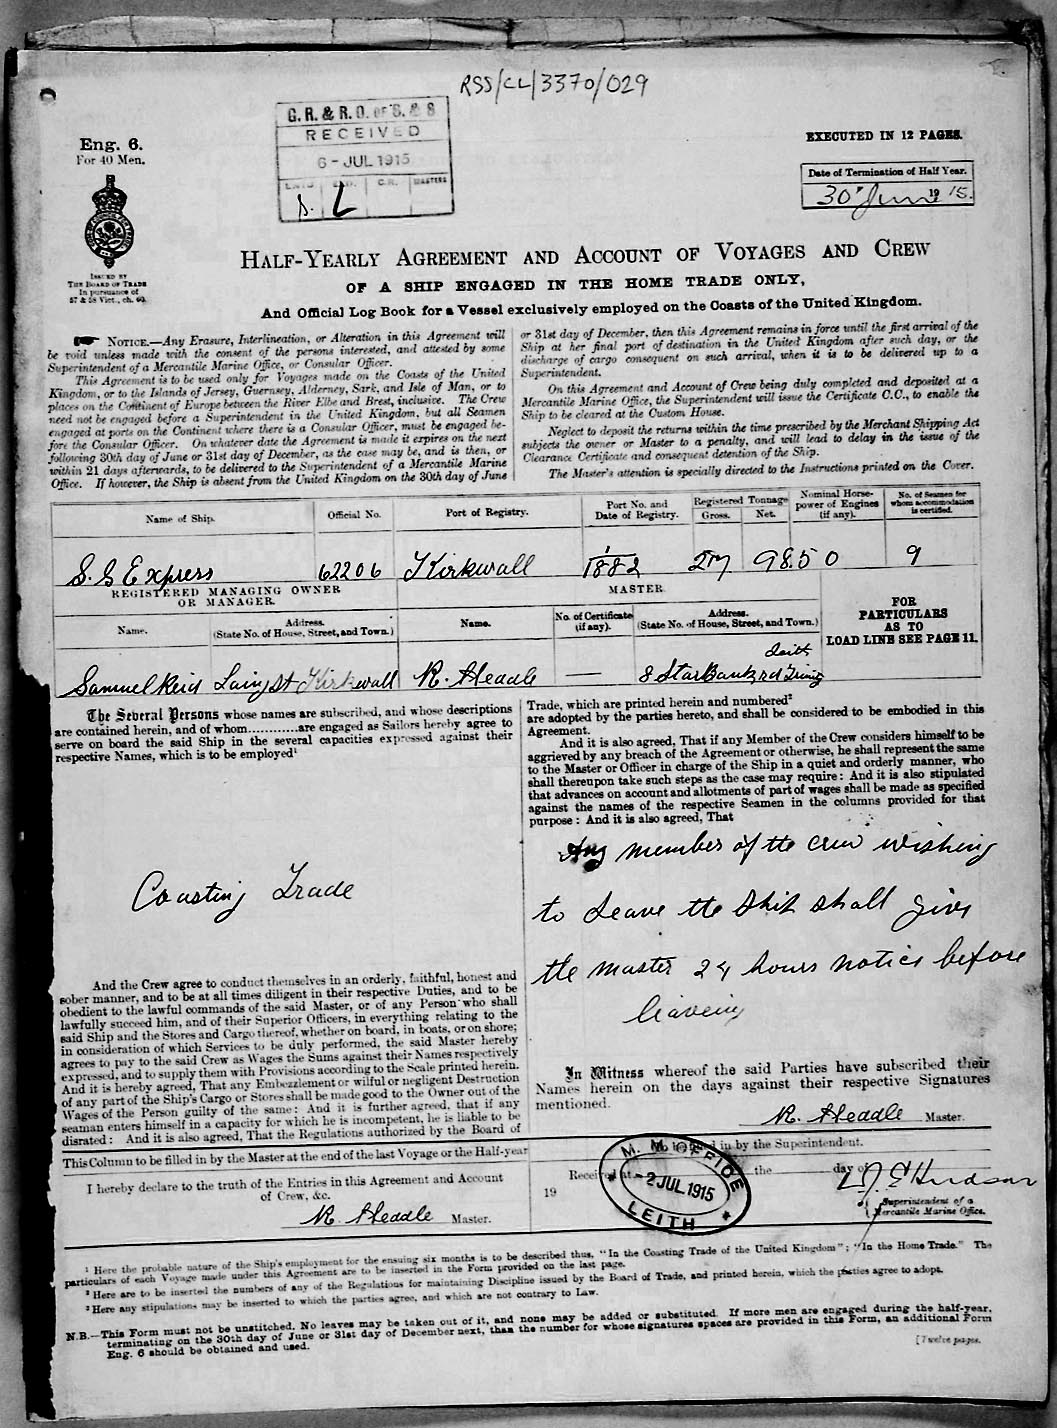 RSS/CL/3370/029
G. R. & R. O. OF S. & S
RECEIVED
6 - JUL 1915
C.R. MASTERS
L
Eng. 6.
For 40 Men.
ISSUED BY
THE BOARD OF TRADE
In pursuance of
57 & 58 Vict., ch. 60.
EXECUTED IN 12 PAGES.
Date of Termination of Half Year.
30 June 1915.
HALF-YEARLY AGREEMENT AND ACCOUNT OF VOYAGES AND CREW
OF A SHIP ENGAGED IN THE HOME TRADE ONLY,
And Official Log Book for a Vessel exclusively employed on the Coasts of the United Kingdom.
NOTICE.—Any Erasure, Interlineation, or Alteration in this Agreement will
be void unless made with the consent of the persons interested, and attested by some
Superintendent of a Mercantile Marine Office, or Consular Officer.
This Agreement is to be used only for Voyages made on the Coasts of the United
Kingdom, or to the Islands of Jersey, Guernsey, Alderney, Sark, and Isle of Man, or to
places on the Continent of Europe between the River Elbe and Brest, inclusive. The Crew
need not be engaged before a Superintendent in the United Kingdom, but all Seamen
engaged at ports on the Continent where there is a Consular Officer, must be engaged be-
fore the Consular Officer. On whatever date the Agreement is made it expires on the next
following 30th day of June or 31st day of December, as the case may be, and is then, or
within 21 days afterwards, to be delivered to the Superintendent of a Mercantile Marine
Office. If however, the Ship is absent from the United Kingdom on the 30th day of June
or 31st day of December, then this Agreement remains in force until the first arrival of the
Ship at her final port of destination in the United Kingdom after such day, or the
discharge of cargo consequent on such arrival, when it is to be delivered up to a
Superintendent.
On this Agreement and Account of Crew being duly completed and deposited at a
Mercantile Marine Office, the Superintendent will issue the Certificate C.C., to enable the
Ship to be cleared at the Custom House.
Neglect to deposit the returns within the time prescribed by the Merchant Shipping Act
subjects the owner or Master to a penalty, and will lead to delay in the issue of the
Clearance Certificate and consequent detention of the Ship.
The Master's attention is specially directed to the Instructions printed on the Cover.
Name of Ship. Official No. Port of Registry. Port No. and Date of Registry. Registered Tonnage Gross. Net. Nominal Horse-power of Engines (if any). No. of Seamen for whom accommodation is certified.
S.S Express 62206 Kirkwall 1/1882 217 98.50 9
REGISTERED MANAGING OWNER
OR MANAGER.
MASTER
Name. Address. (State No. of House, Street, and Town.) Name. No. of Certificate (if any). Address. (State No. of House, Street, and Town.)
FOR
PARTICULARS
AS TO
LOAD LINE SEE PAGE 11.
Leith
Samuel Reid Laing St Kirkwall R. Heddle — 8 Starbank rd
The Several Persons whose names are subscribed, and whose descriptions
are contained herein, and of whom............are engaged as Sailors hereby agree to
serve on board the said Ship in the several capacities expressed against their
respective Names, which is to be employed¹
Coasting Trade
And the Crew agree to conduct themselves in an orderly, faithful, honest and
sober manner, and to be at all times diligent in their respective Duties, and to be
obedient to the lawful commands of the said Master, or of any Person who shall
lawfully succeed him, and of their Superior Officers, in everything relating to the
said Ship and the Stores and Cargo thereof, whether on board, in boats, or on shore;
in consideration of which Services to be duly performed, the said Master hereby
agrees to pay to the said Crew as Wages the Sums against their Names respectively
expressed, and to supply them with Provisions according to the Scale printed herein.
And it is hereby agreed, That any Embezzlement or wilful or negligent Destruction
of any part of the Ship's Cargo or Stores shall be made good to the Owner out of the
Wages of the Person guilty of the same: And it is further agreed, that if any
seaman enters himself in a capacity for which he is incompetent, he is liable to be
disrated: And it is also agreed, That the Regulations authorized by the Board of
Trade, which are printed herein and numbered²
are adopted by the parties hereto, and shall be considered to be embodied in this
Agreement.
And it is also agreed, That if any Member of the Crew considers himself to be
aggrieved by any breach of the Agreement or otherwise, he shall represent the same
to the Master or Officer in charge of the Ship in a quiet and orderly manner, who
shall thereupon take such steps as the case may require: And it is also stipulated
that advances on account and allotments of part of wages shall be made as specified
against the names of the respective Seamen in the columns provided for that
purpose: And it is also agreed, That
Any member of the crew wishing
to leave the ship shall give
the master 24 hours notice before
leaving
In Witness whereof the said Parties have subscribed their
Names herein on the days against their respective Signatures
mentioned.
R. Heddle Master.
This Column to be filled in by the Master at the end of the last Voyage or the Half-year
I hereby declare to the truth of the Entries in this Agreement and Account
of Crew, &c.
R. Heddle Master.
in by the Superintendent.
Received at the day of
19
M. M. OFFICE
- 2 JUL 1915
LEITH
Hudson
Superintendent of a
Mercantile Marine Office.
¹ Here the probable nature of the Ship's employment for the ensuing six months is to be described thus, "In the Coasting Trade of the United Kingdom"; "In the Home Trade." The
particulars of each Voyage made under this Agreement are to be inserted in the Form provided on the last page.
² Here are to be inserted the numbers of any of the Regulations for maintaining Discipline issued by the Board of Trade, and printed herein, which the parties agree to adopt.
³ Here any stipulations may be inserted to which the parties agree, and which are not contrary to Law.
N.B.—This Form must not be unstitched. No leaves may be taken out of it, and none may be added or substituted. If more men are engaged during the half-year,
terminating on the 30th day of June or 31st day of December next, than the number for whose signatures spaces are provided in this Form, an additional Form
Eng. 6 should be obtained and used.
[Twelve pages.